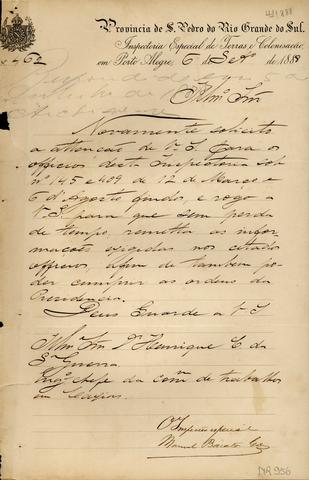 4/1888
Provincia de S. Pedro do Rio Grande do Sul.
Inspectoria Especial de Terras e Colonisação
em Porto Alegre, 6 de Setº de 1888
Nº 62
Illmo Snr
Novamente solicito
a attenção de V. S. para os
officios desta Inspectoria sob
nº 145 e 409 de 12 de Março e
6 d'Agosto findo, e rogo a
V. S. para que sem perda
de tempo, remetta as infor
mações exigidas nos citado
officios, afim de tambem po
der cumprir as ordens da
Presidencia.
Deus Guarde a V. S.
Illmo Snr Dr Henrique C. da
Sª Guerra.
Engº chefe da comm de trabalhos
em Caxias.
O Inspector especial
Manoel Barata Góes
DR 956